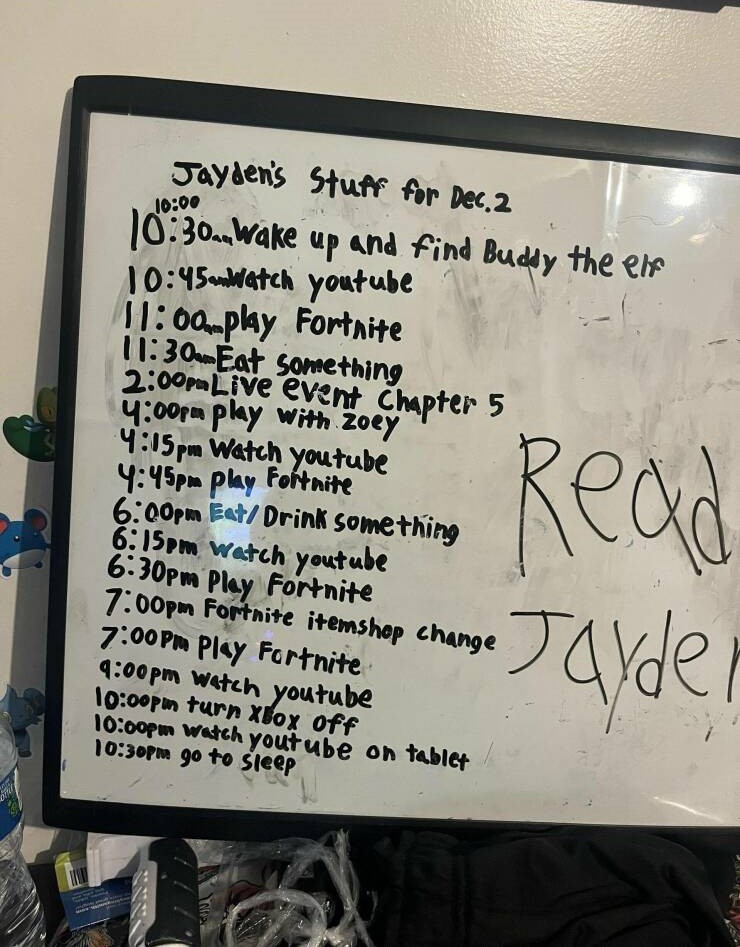 Jayden's Stuff for Dec. 2
10:00
10:30am Wake up and find Buddy the elf
10:45am Watch youtube
11:00am play Fortnite
11:30am Eat something
2:00pm Live event Chapter 5
4:00pm play with zoey
4:15pm Watch youtube
4:45pm play Fortnite
6:00pm Eat/Drink something
6:15pm watch youtube
6:30pm Play Fortnite
7:00pm Fortnite itemshop change
7:00pm Play Fortnite
9:00pm watch youtube
10:00pm turn xbox off
10:00pm watch youtube on tablet
10:30pm go to sleep
Read
Jayden